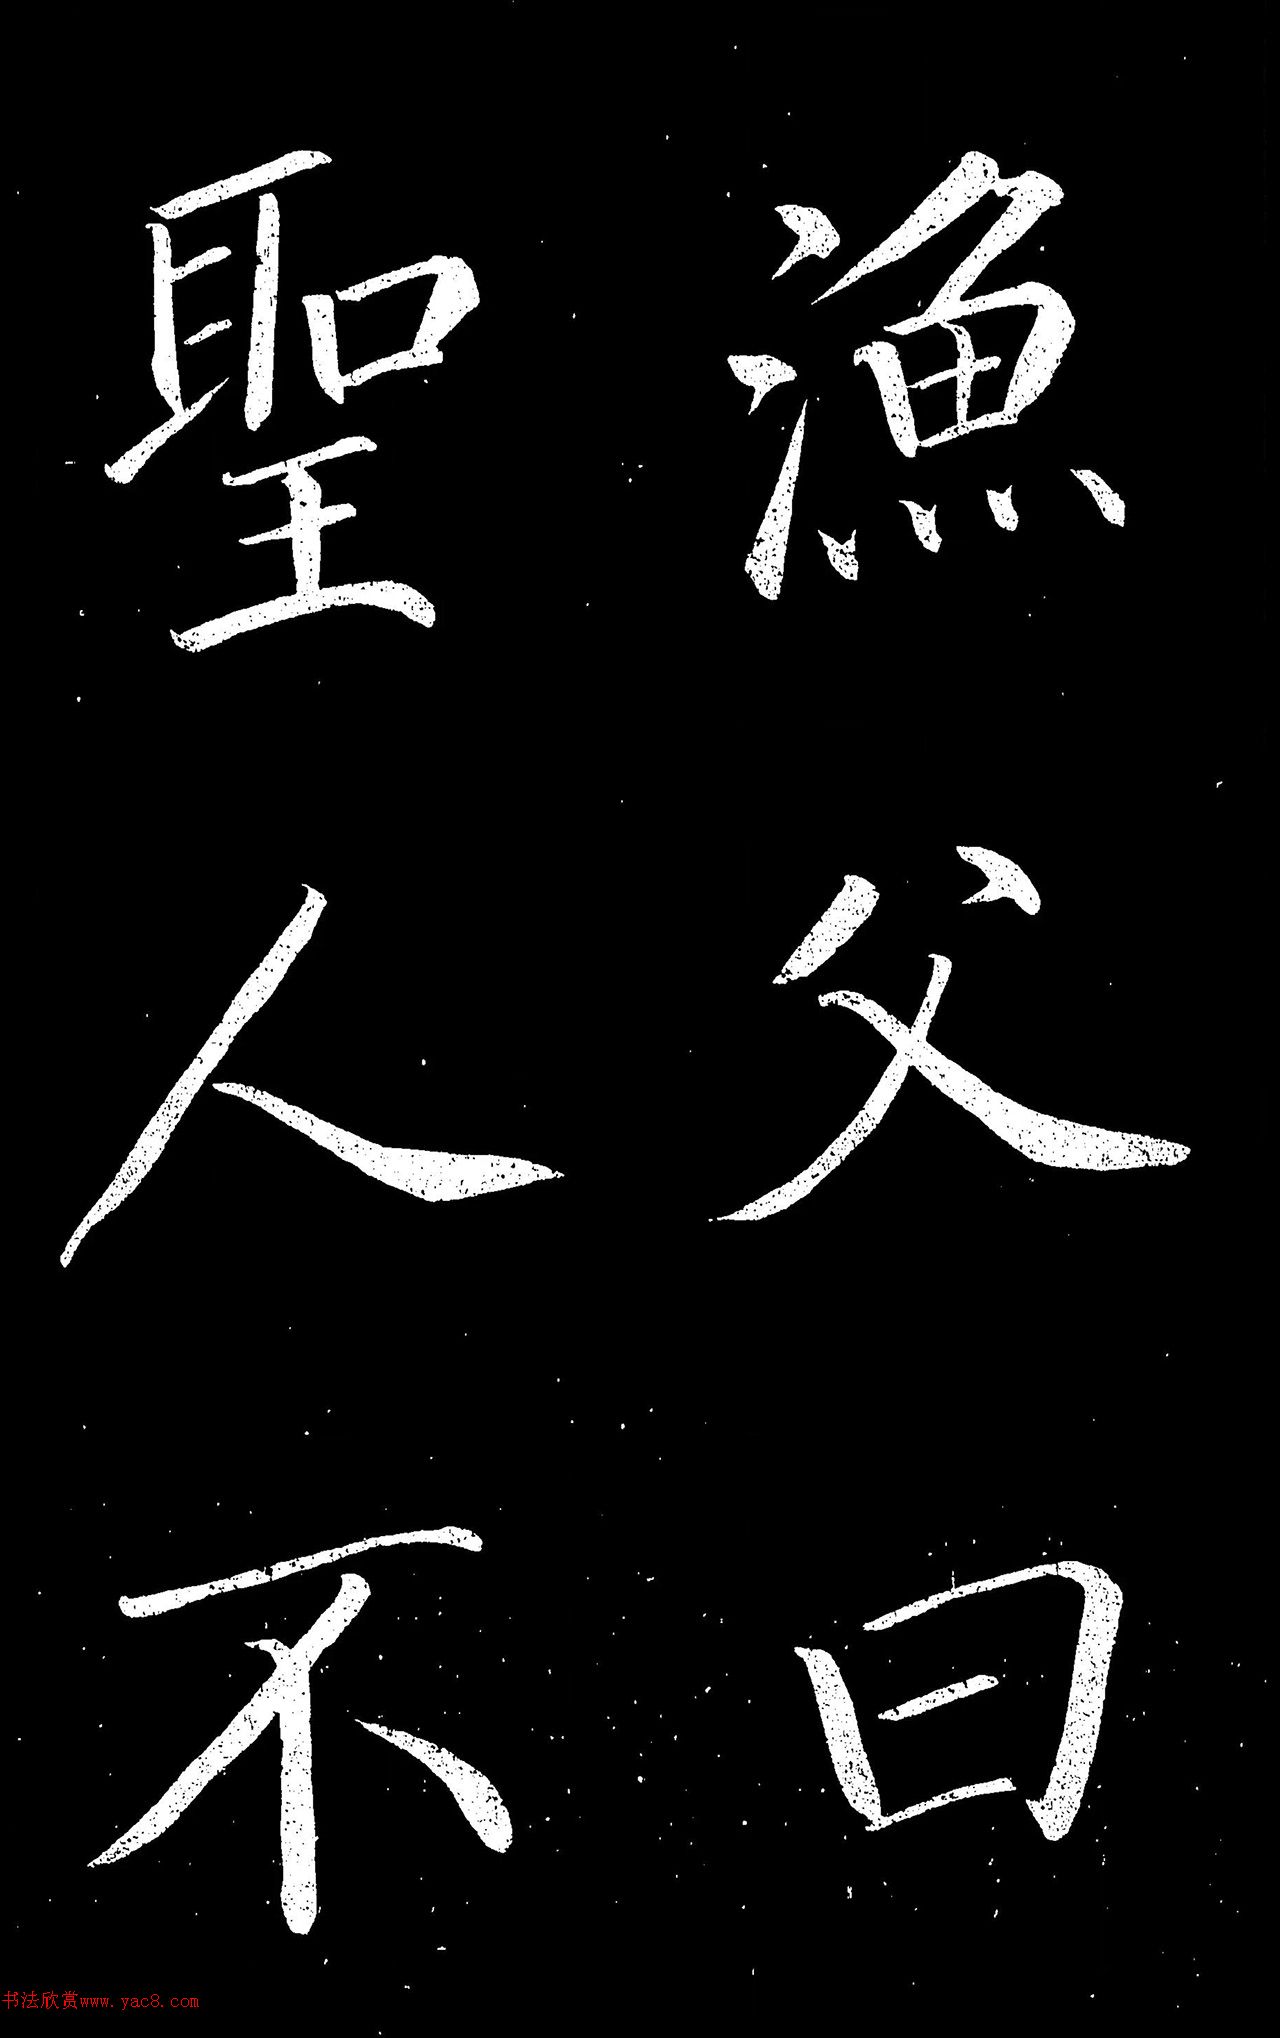 漁父曰
聖人不
书法欣赏www.yac8.com